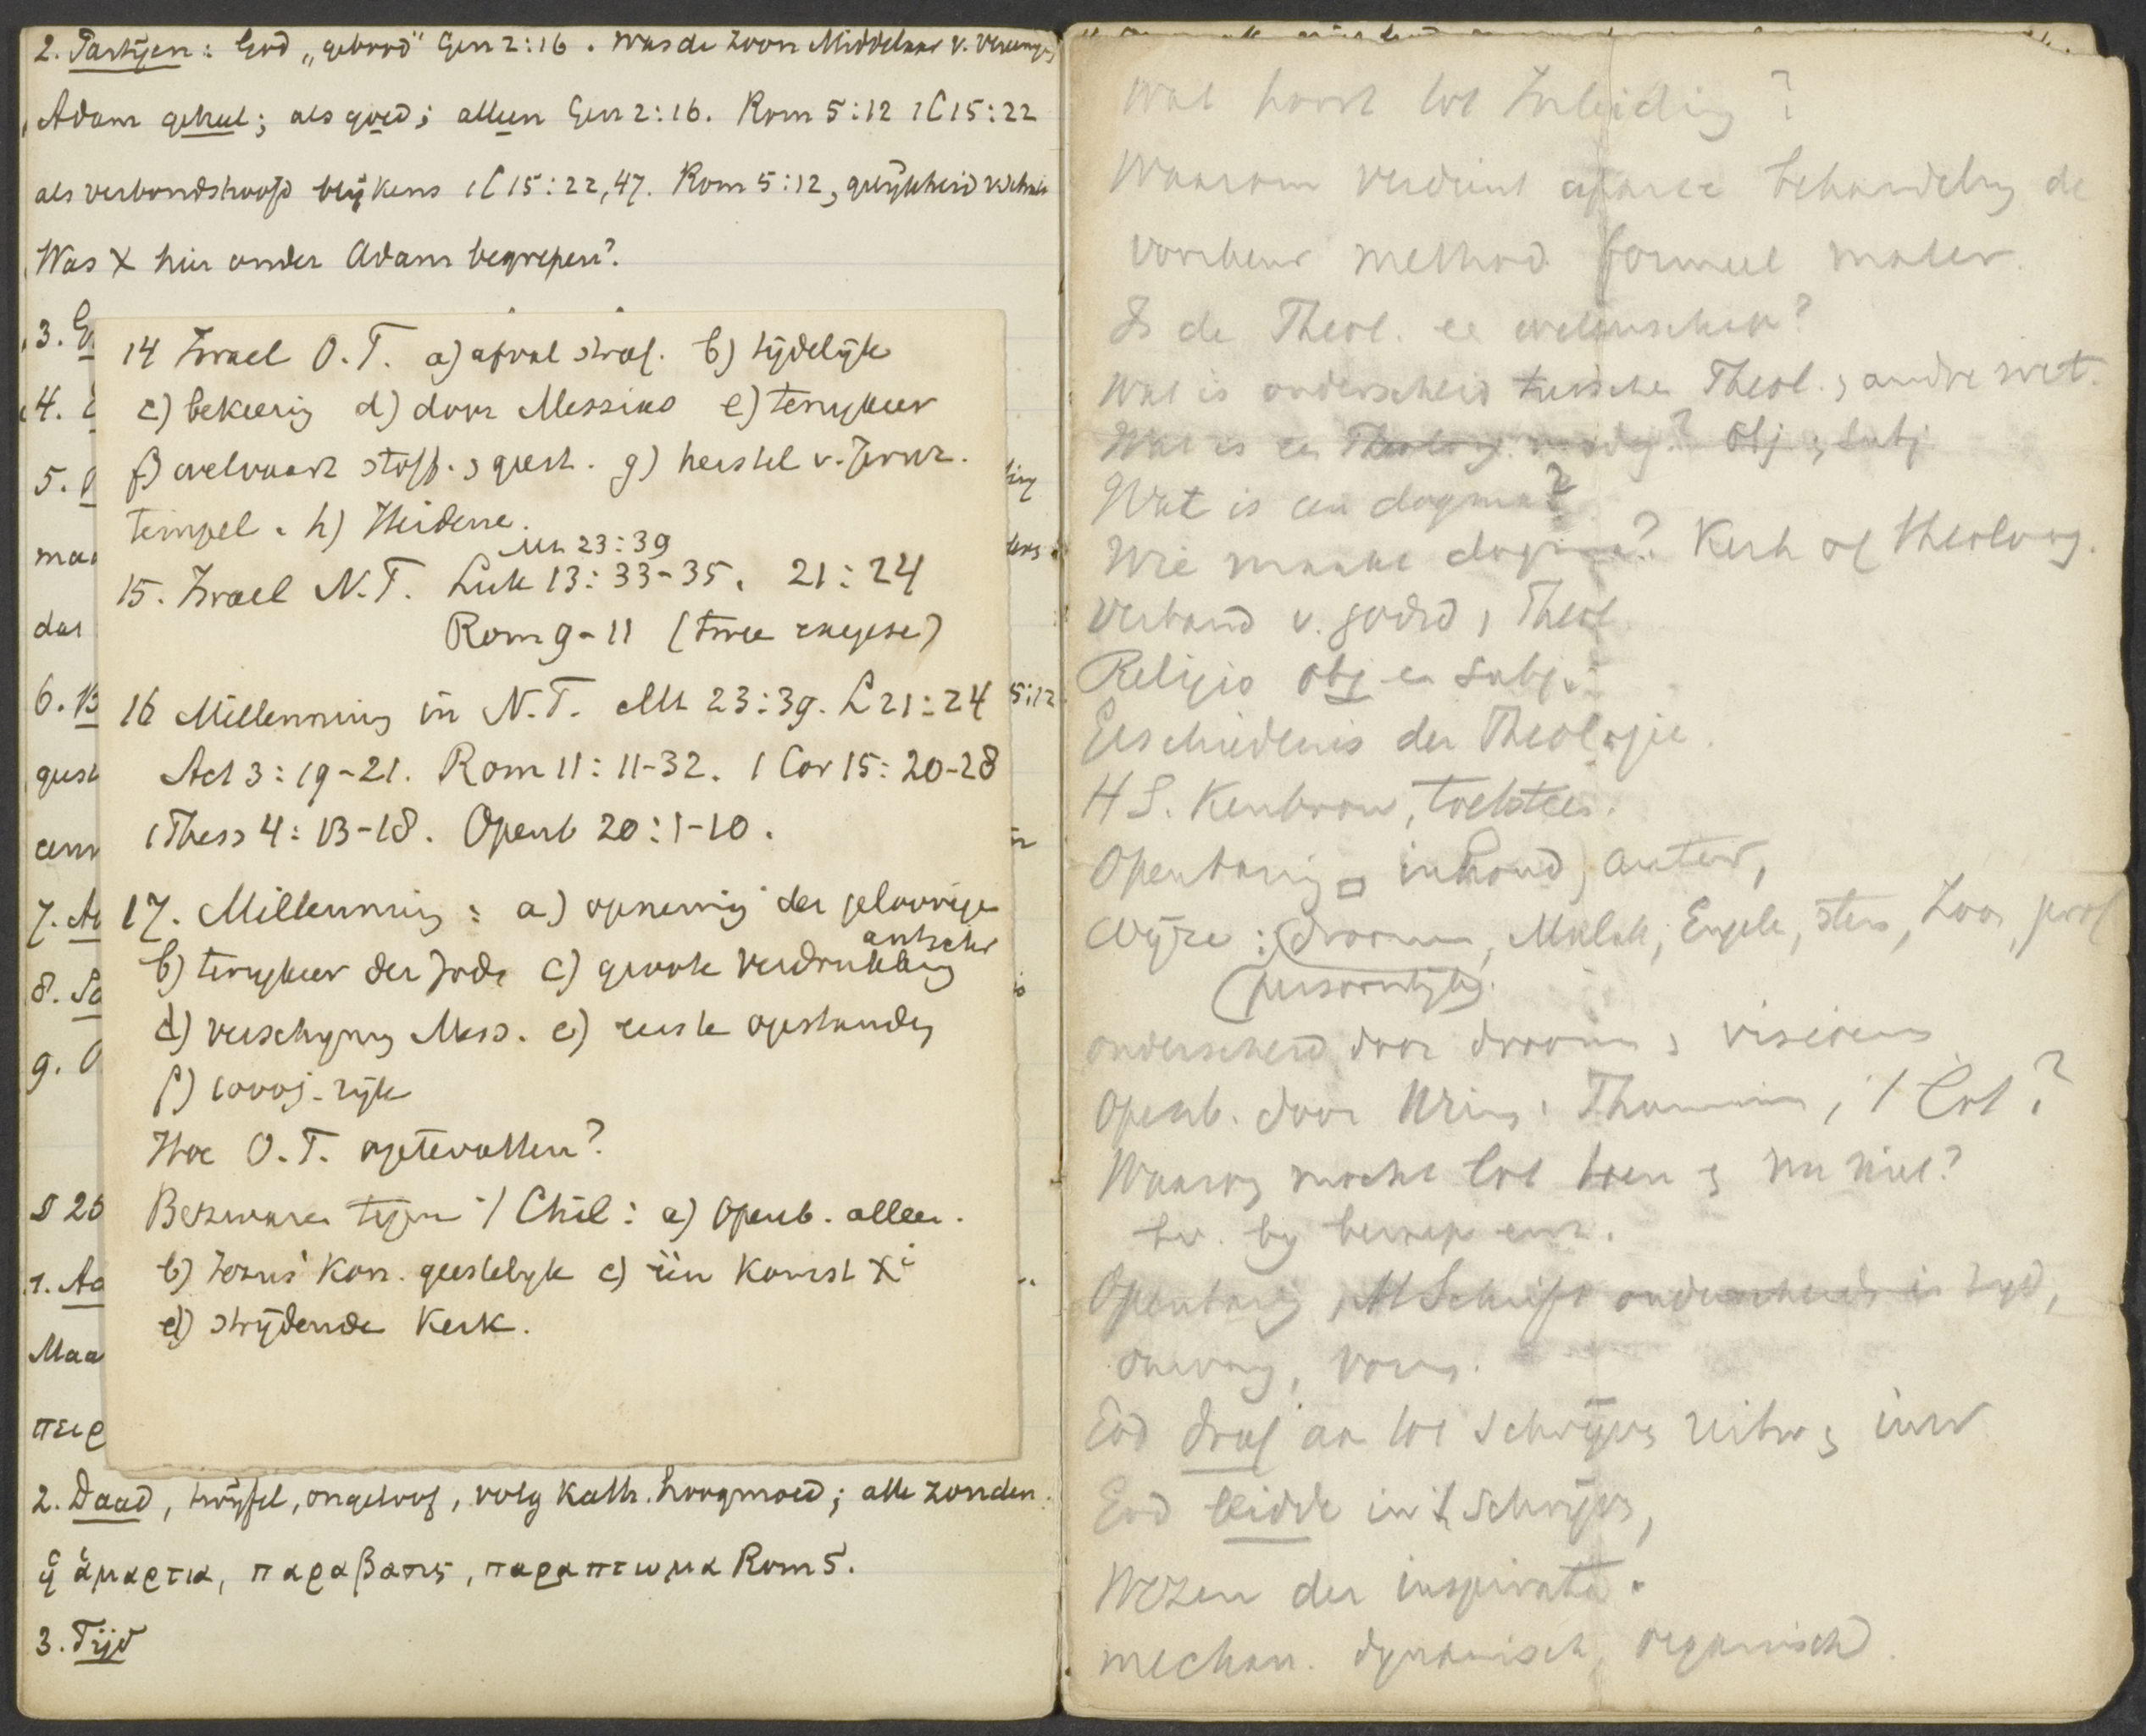 2. Partijen: God „gebood" Gen 2:16. was de Zoon Middelaar v. vereenig
Adam geheel; als goed; alleen Gen 2:16. Rom 5:12 1C15:22
als verbondshoofd blijkens 1C15:22,47. Rom 5:12,
Was X hier onder Adam begrepen?
3.
4.
5.
maa
das
6.
geest
7.
8.
9.
§ 25
1.
Maa
πειρ
14 Israel O.T. a) afval straf. b) tijdelijk
c) bekeering d) door Messias e) terugkeer
f) welvaart stoff. geest. g) herstel v. Jeruz.
tempel. h) Heidene.
Mt 23:39
15. Israel N.T. Luk 13:33-35. 21:24
Rom 9-11 (twee exegese)
16 Millennium in N.T. Mt 23:39. L21:24
Act 3:19-21. Rom 11:11-32. 1 Cor 15:20-28
1Thess 4:13-18. Openb 20:1-10.
17. Millennium: a) opneming der geloovige
antichr
b) terugkeer der Jode c) groote verdrukking
d) verschijning Mess. e) eerste opstanding
f) 1000j. rijk
Hoe O.T. optevatten?
Bezwaren tegen 't Chil: a) Openb. alleen.
b) Jezus' Kon. geestelijk c) één Komst Xi
d) strijdende Kerk.
5:12
2. Daad, twijfel, ongeloof, volg Kath. hoogmoed; alle zonden.
ἁμαρτια, παραβασις, παραπτωμα Rom 5.
3. Tijd
Wat hoort tot Inleiding?
Waarom verdient aparte behandeling de
voorkeur method formeel mater.
Is de Theol. ee wetenschap?
Wat is onderscheid tussche Theol. andre wet.
Wat is ee Obj subj
Wat is een dogma?
Wie maakt dogma? Kerk of theoloog.
Verband v. godsd, Theol.
Religio obj en subj.
Geschiedenis der Theologie.
H S. Kenbron, toetsteen.
Openbaring inhoud, auteur,
Wijze: droomen, Malak, Engele, stem, Zoon, prof
(persoonlijk).
onderscheid door droomen visioenen
Openb. door Urim, Thummim, 't Lot?
Waarom mocht lot toen nu niet?
bv. bij beroep enz.
Openbaring, H Schrift onderscheid in tijd,
omvang, vorm.
God dreef aan tot schrijven uitw inw
God leidde in 't schrijven,
Wezen der inspiratie.
mechan. dynamisch, organisch.